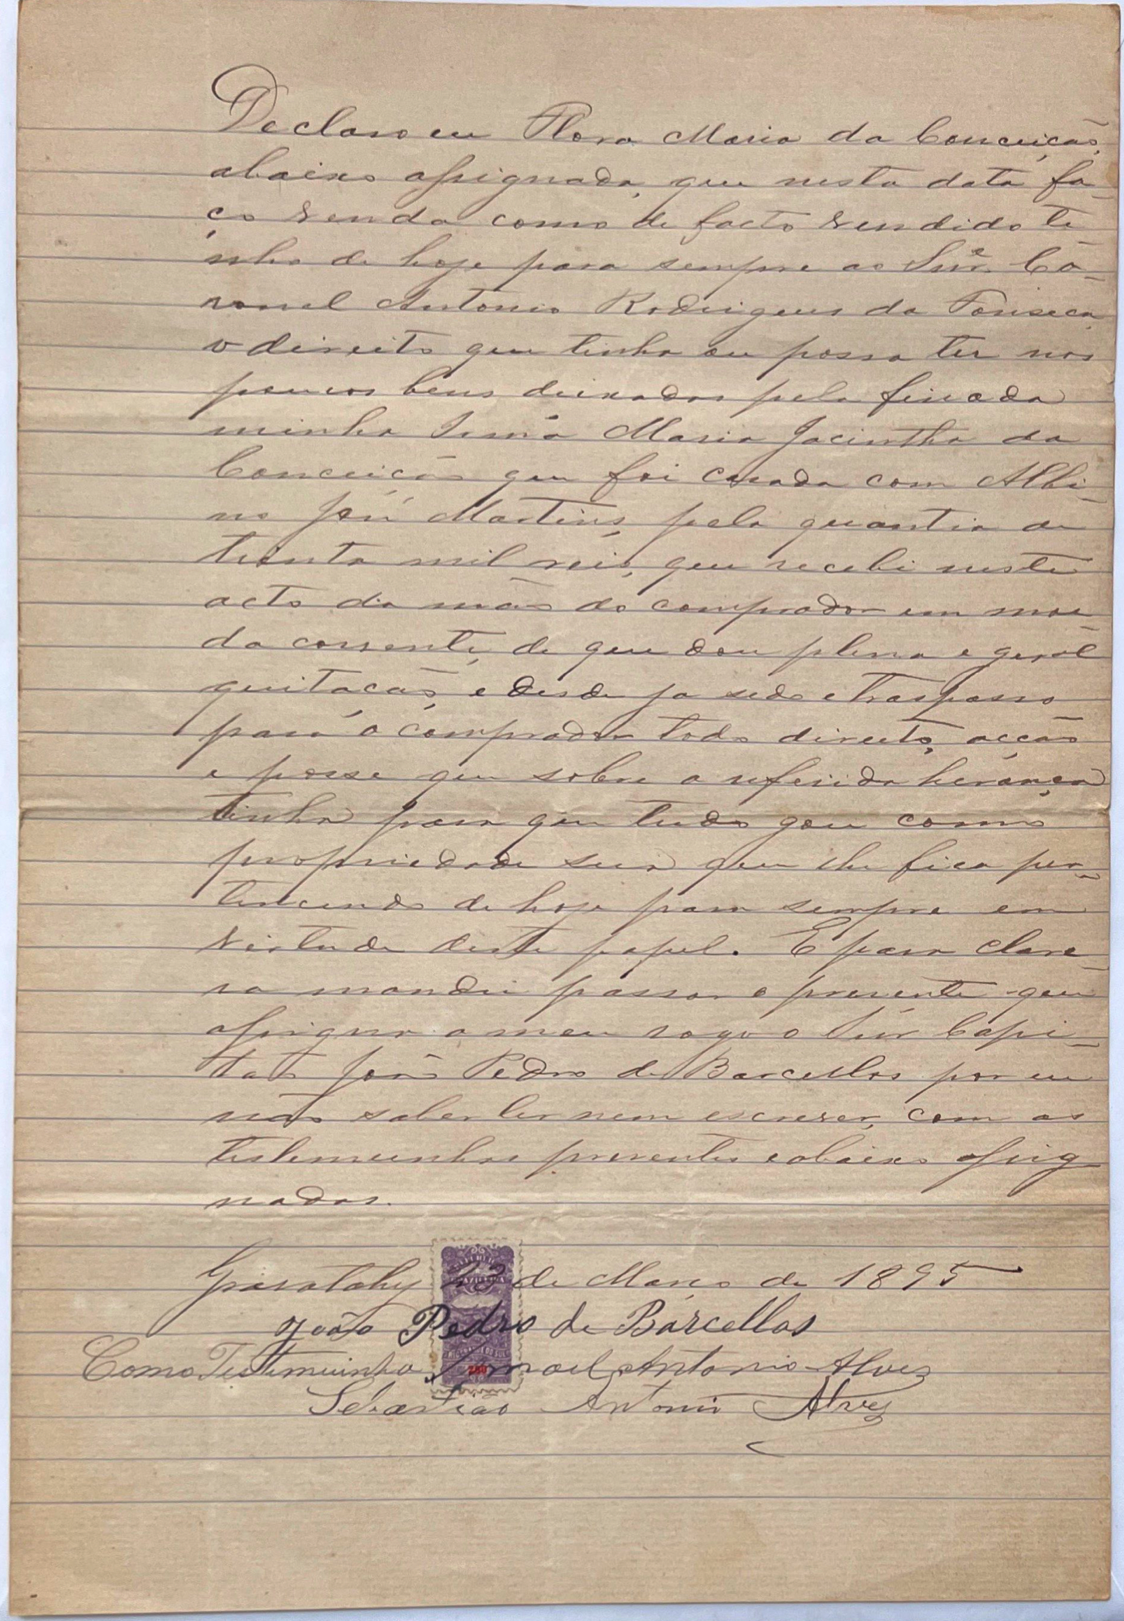 Declaro eu Flora Maria da Conceição,
abaixo assignada, que nesta data fa-
ço venda como de facto vendido te-
nho de hoje para sempre ao Snr. Co-
ronel Antonio Rodrigues da Fonseca
o direito que tinha ou possa ter nos
poucos bens deixados pela finada
minha Irmã Maria Jacintha da
Conceição que foi casada com Albi-
no José Martins, pela quantia de
trinta mil reis, que recebi neste
acto da mão do comprador em moe-
da corrente, de que dou plena e geral
quitacão, e desde ja sedo e traspasso
para o comprador todo direito, acção
e posse que sobre a referida herança
tinha para que tudo gou como
propriedade sua que lhe fica per-
tencendo de hoje para sempre em
virtude deste papel. E para clare-
sa mandei passar o presente que
assigna a meu rogo o Snr Capi-
tão João Pedro de Barcellos por eu
não saber ler nem escrever, com as
testemunhas presentes e abaixo assig
nadas.
Gravatahy 23 de Março de 1895
João Pedro de Barcellos
Como Testimuinha Ismael Antonio Alves
Sebastião Antonio Alves